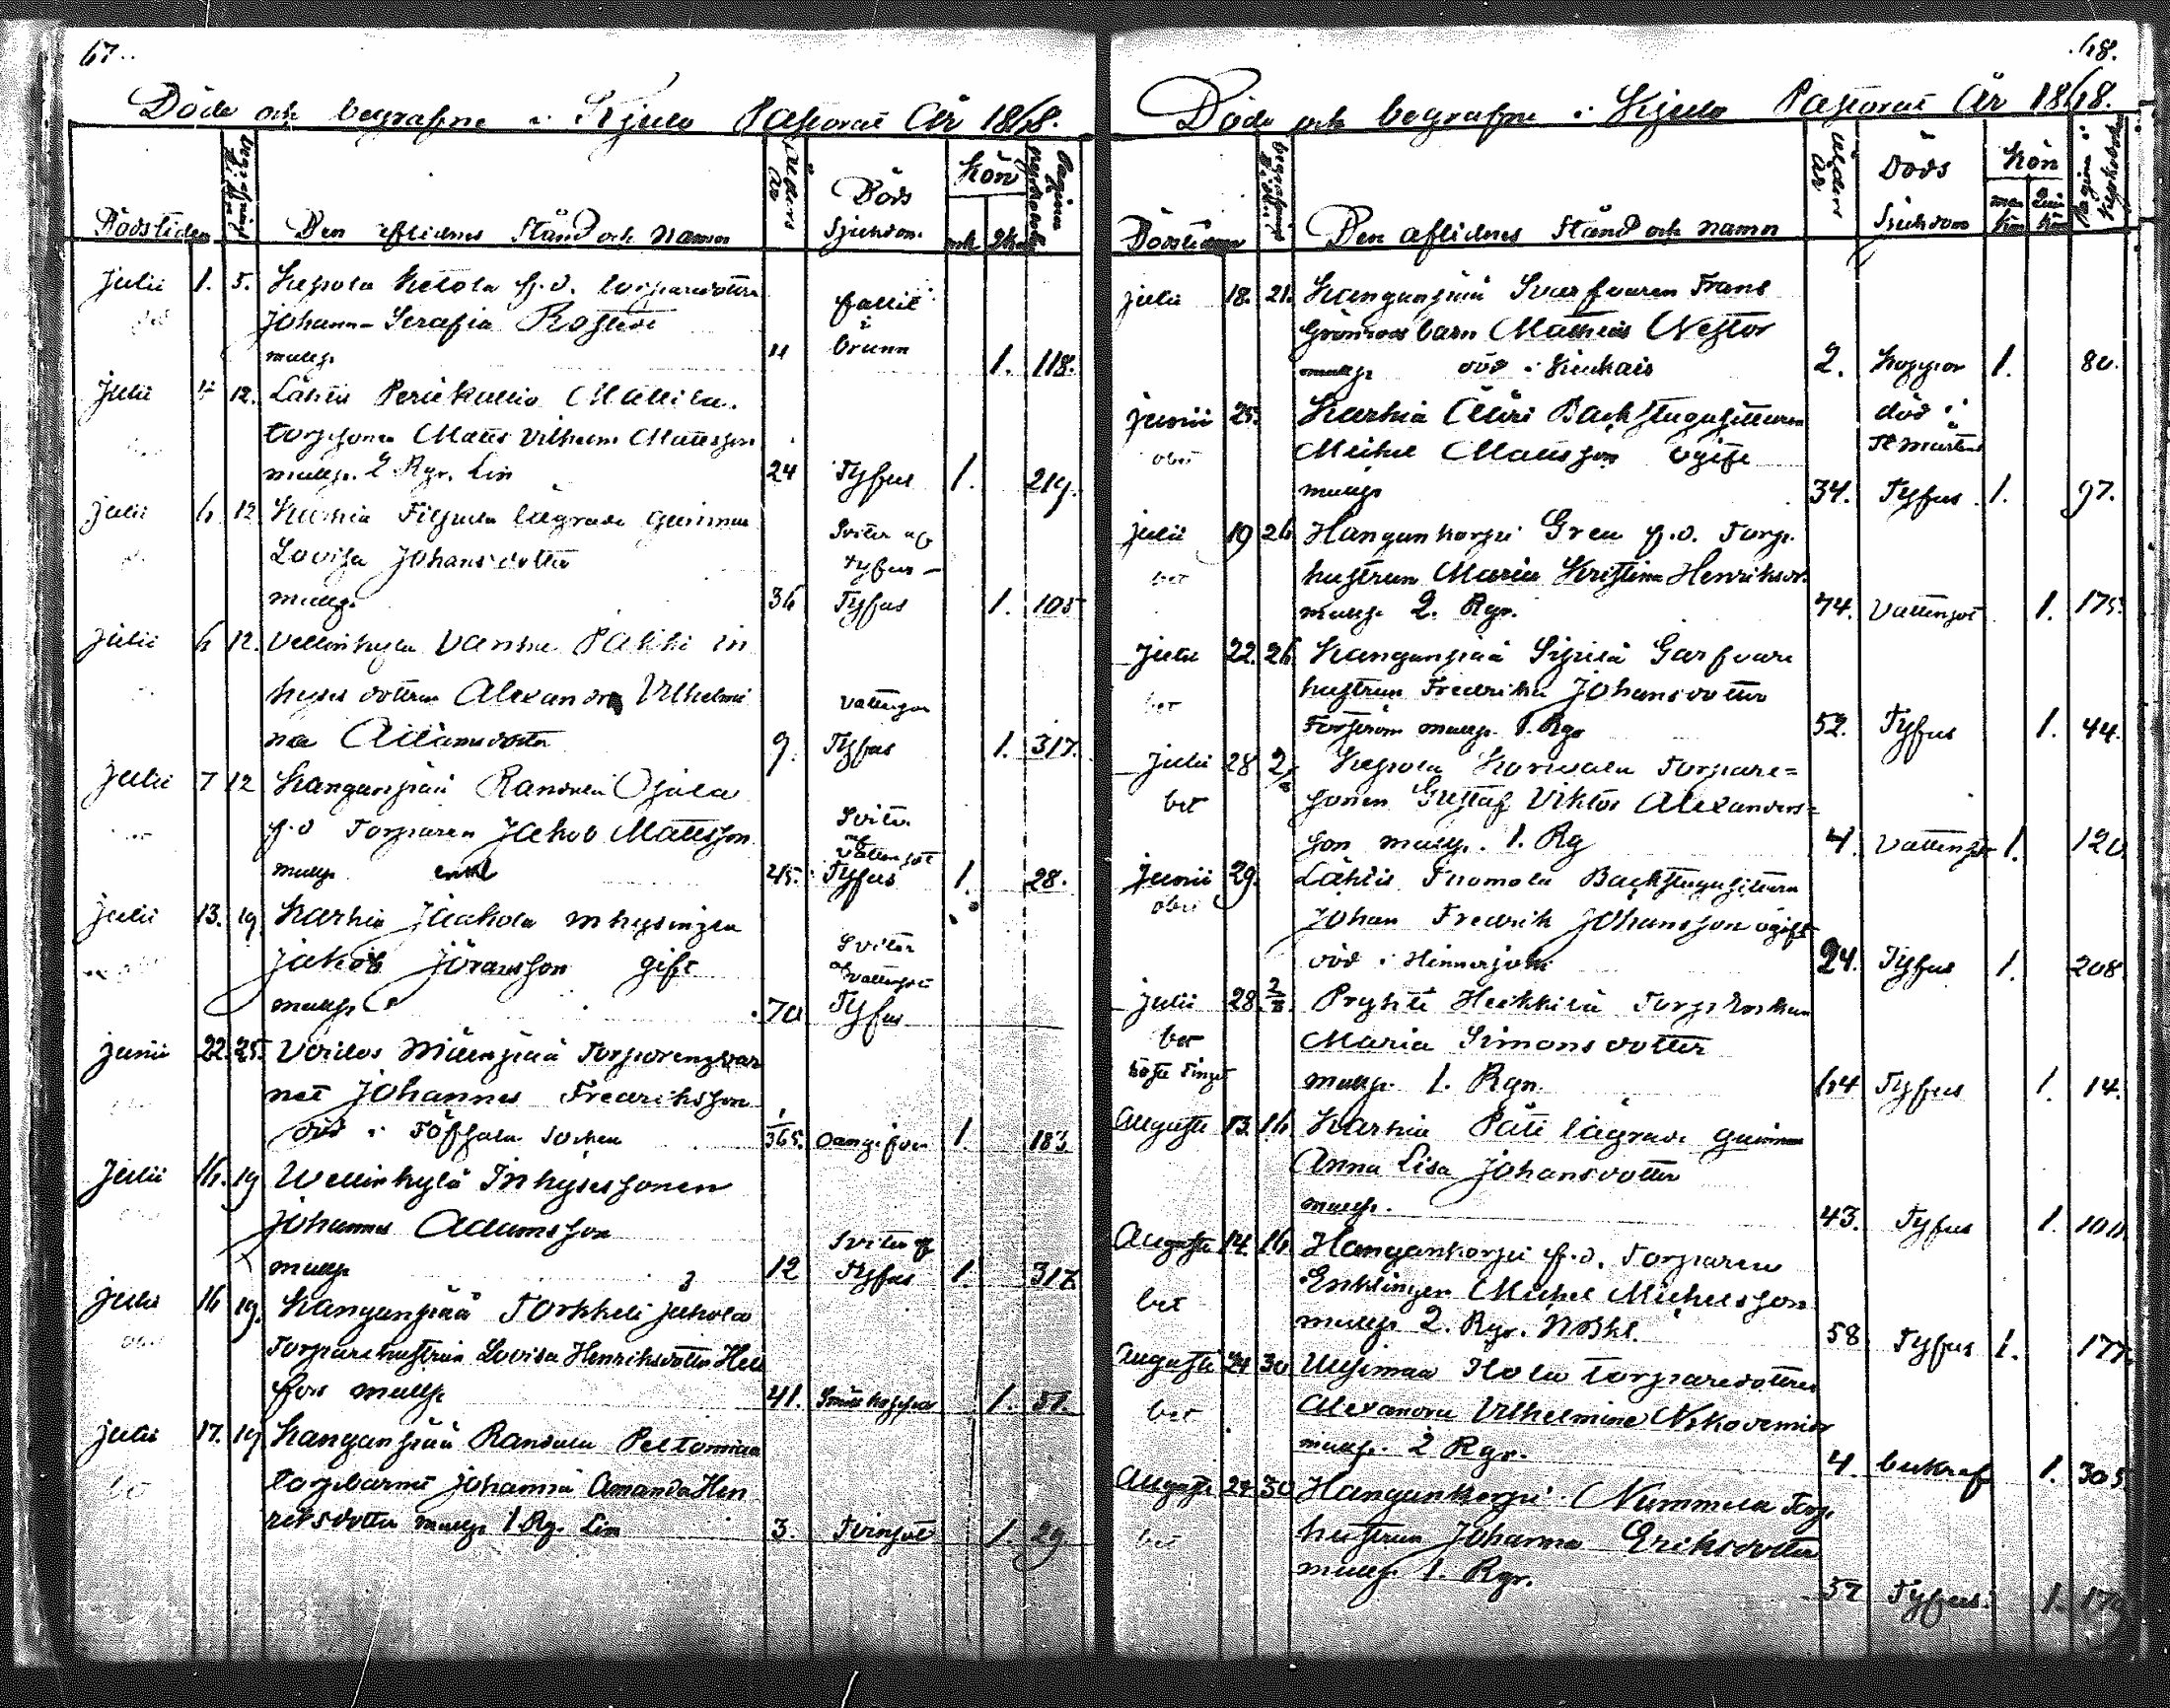 67.
Döde och begrafne i Kjulo Pastorat År 1868.
Dödstiden
Den aflidnes Stånd och Namn
Ålders År
Döds Sjukdom
Kön
mk qk
Pagina
Julii 1. 5. Kepola Ketola f.d. torparedottren
Johanna Serafia
mullp. 11 fallit i brunn 1. 118.
Julii 4 12. Lähtis Perikallio Mattila
torpsonen Matts Vilhelm Mattsson
mullp. 2 Rgr. Lin 24 Tyfus 1. 219.
Julii 6. 12 Karhia lägrade qvinnan
Lovisa Johansdotter
mullp. 36 Sviter af tyfus – Tyfus 1. 105
Julii 6 12. Vellinkylä Vanha Pakki in
hyses dottren Alexandra Vilhelmi
na Adamsdotter 9. vattusot Tyfus 1. 317.
Julii 7 12 Kanganpää Randala Ojala
f.d Torparen Jakob Mattsson
mullp. enkl 45. Sviter af vattusot Tyfus 1. 28.
Julii 13. 19. Karhia Jaakola inhysingen
Jakob Jöransson gift
mullp. 70 Sviter af vattusot Tyfus
Junii 22. 25. Voitos Mäenpää Torparens bar
net Johannes Fredriksson
död i Töfsala Socken 1/365. oangifven 1. 183
Julii 16. 19 Vellinkylä Inhysessonen
Johannes Adamsson
mullp 12 Sviter af Tyfus 1. 317.
Julii 16 19. Kanganpää Torkkeli Jakola
Torparehustrun Lovisa Henriksdotter Hell
fors mullp 41. Smittkoppor 1. 51.
Julii 17. 19 Kanganpää Randala Peltomaa
torpbarnet Johanna Amanda Hen
riksdotter mullp 1 Rg. Lin 3. Tvinsot 1. 29.
68.
Döde och begrafne i Kjulo Pastorat År 1868.
Dödstiden
Den aflidnes Stånd och namn
Ålders År
Döds Sjukdom
Kön
man kön Qvin kön
Pagina i Kyrkoboken
Julii 18. 21. Kanganpää Svarfvaren Frans
Grönroos barn Mathias Nestor
mullp död i Kiukais 2. Koppor 1. 80.
Junii 25. Karhia Ääri Backstugusittaren
Michel Mattsson ogift
mullp 34. död i St Mårtens Tyfus 1. 97.
Julii 19 26 Hangunkorpi Greu f.d. Torp.
bet hustrun Maria Kristina Henriksd.
mullp 2. Rgr. 74. Vattusot 1. 175.
Julii 22. 26. Kanganpää Sipilä Garfvare
bet hustrun Fredrika Johansdotter
Forsström mullp. 1. Rgr 52. Tyfus 1. 44.
Julii 28 2/8 Kepola Korvala Torpare=
bet sonen Gustaf Viktor Alexanders=
son mullp. 1. Rg 4. Vattusot 1. 120
Junii 29. Lähtis Tuomola Backstugusittaren
obet Johan Fredrik Johansson ogift
död i Hinnerjoki 24. Tyfus 1. 208
Julii 28. 2/8. Pryhti Heikkilä Torpenkan
bet Maria Simonsdotter
mullp 1. Rgn. 64 Tyfus 1. 14.
Augusti 13. 16. Karhia Päti lägrade qvinnan
Anna Lisa Johansdotter
mullp. 43. Tyfus 1. 100
Augusti 14. 16. Hangunkorpi f.d. Torparen
bet Enklingen Michel Michelsson
mullp 2. Rgr. 58 Tyfus 1. 177.
Augusti 24 30 Uusimaa Hola torparedottren
bet Alexandra Vilhelmina Nikodemid
mullp. 2 Rgr. 4. 1. 305
Augusti 24 30 Hangunkorpi Nummela Torp.
bet hustrun Johanna Eriksdotter
mullp 1. Rgr. 57 Tyfus 1. 170